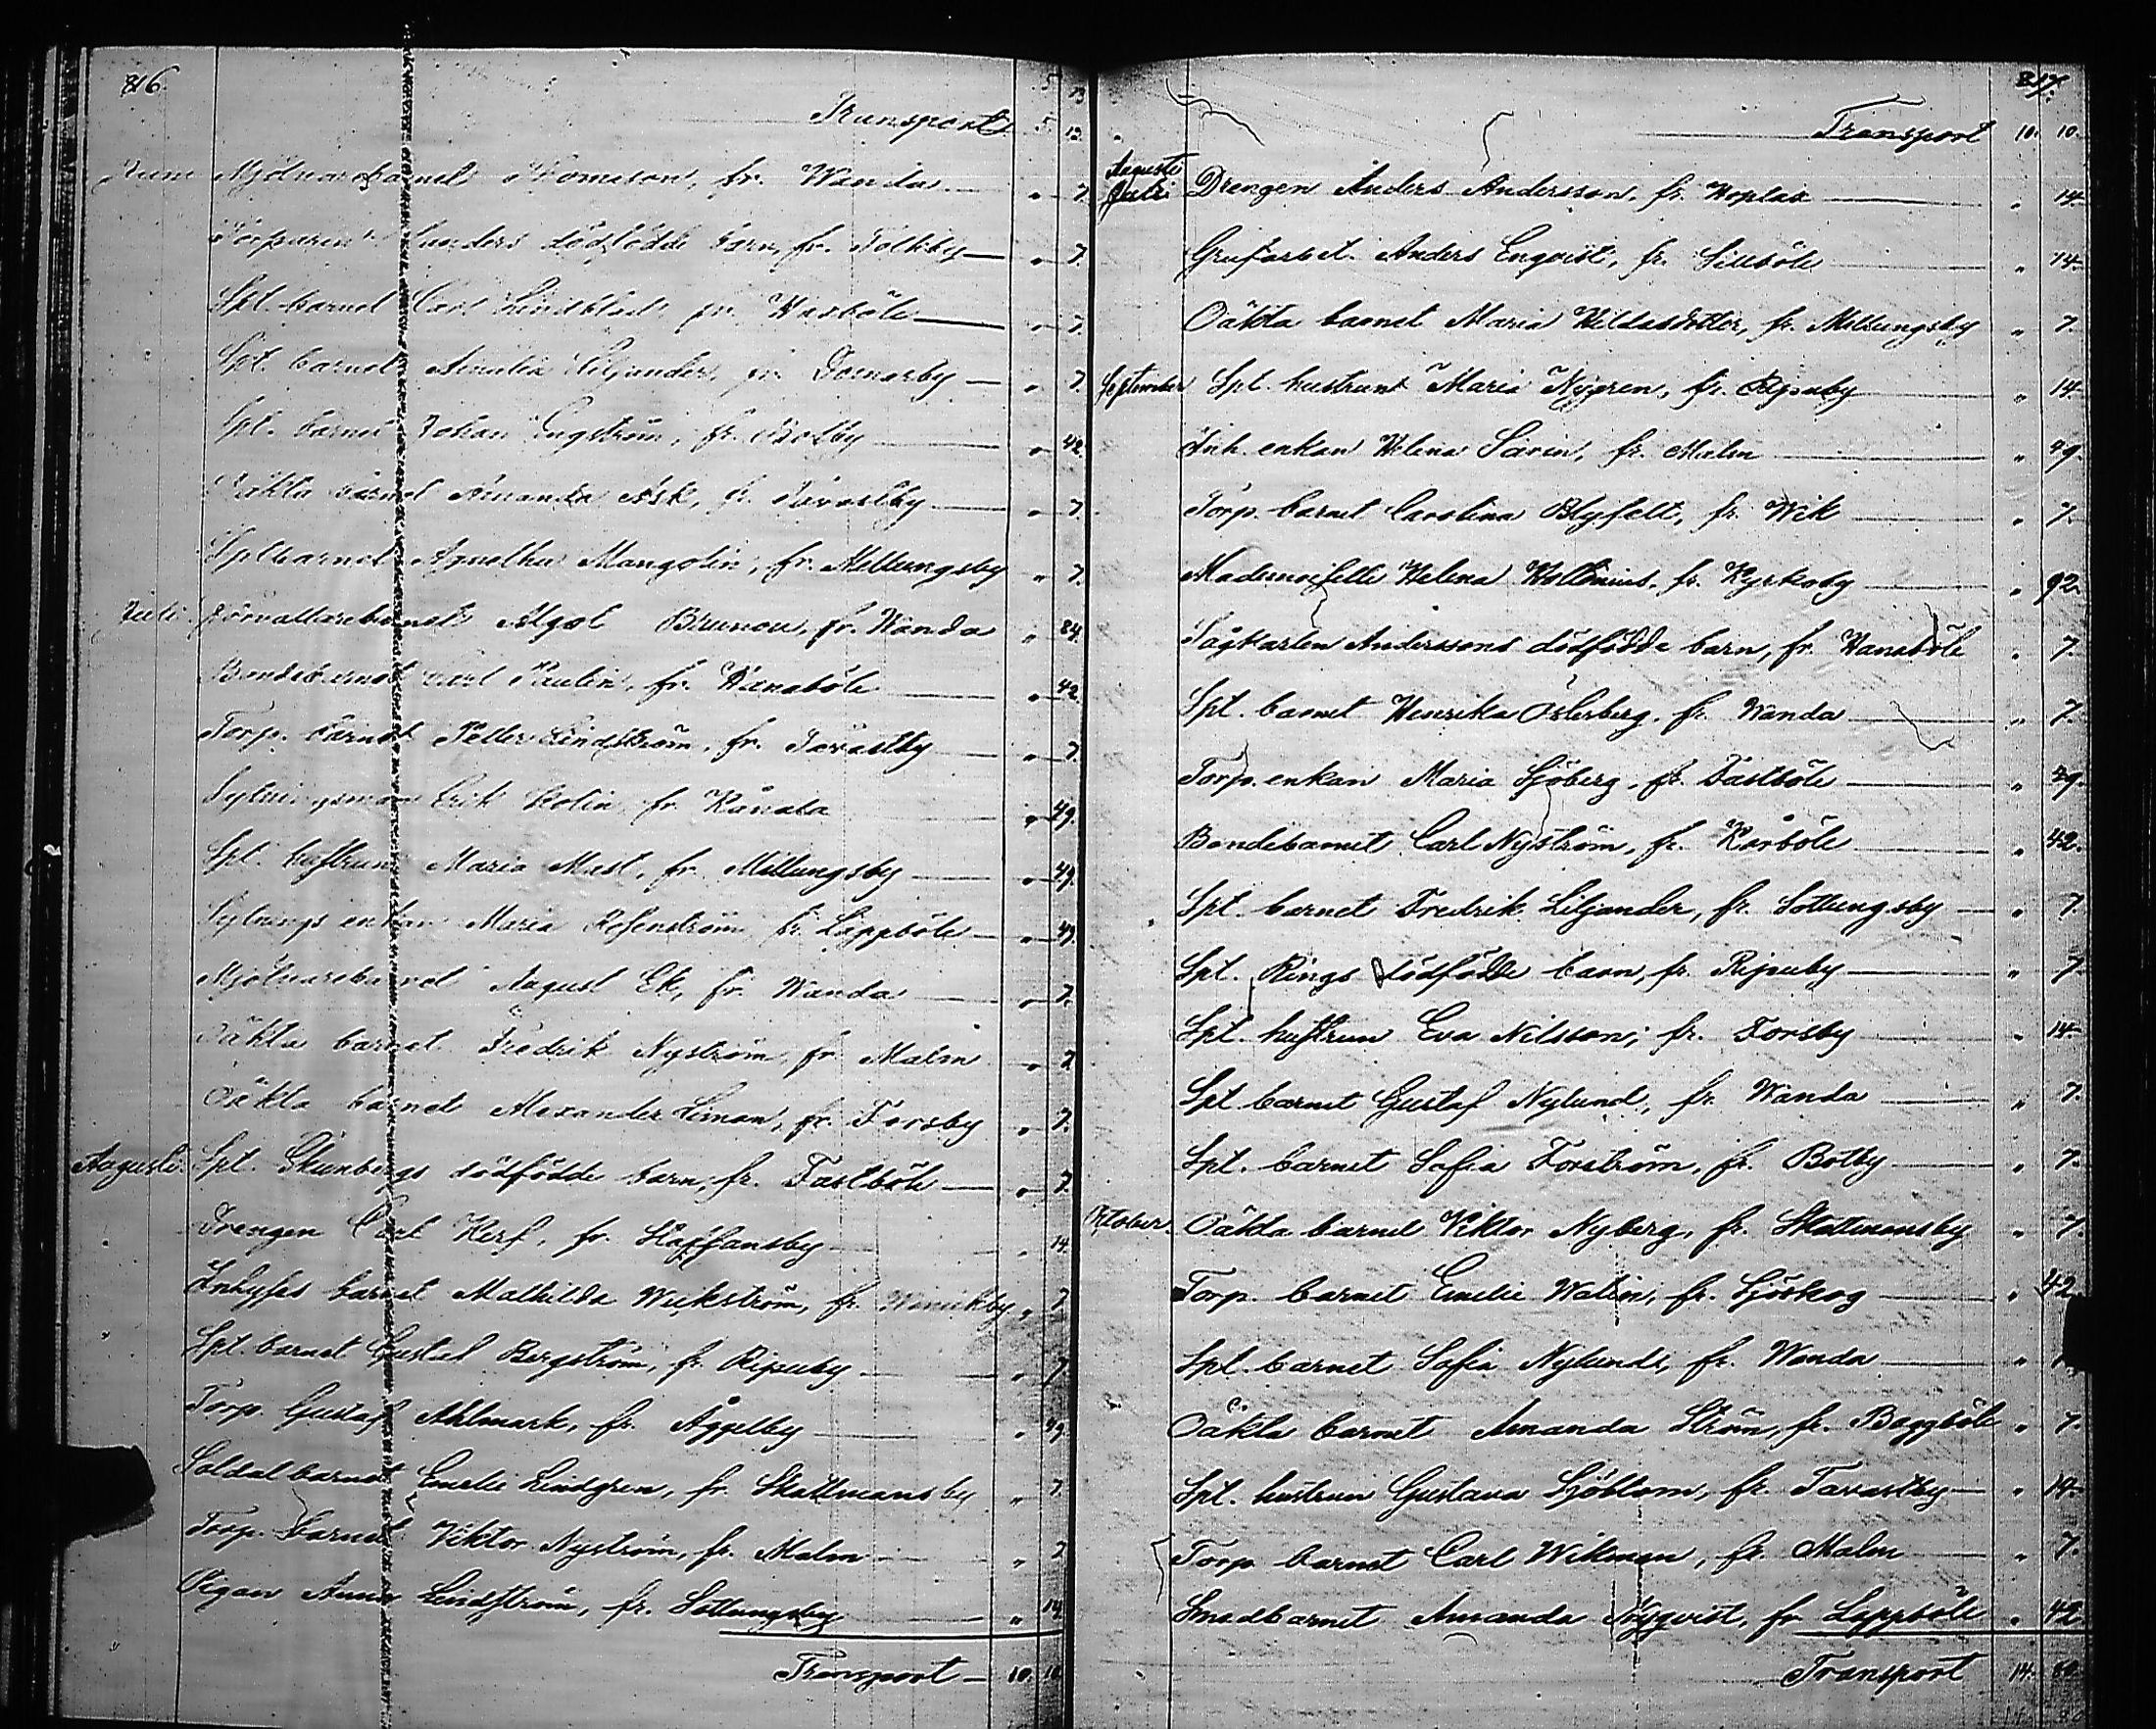 816.
Transport 5. 12.
Juni Mjölnarebarnet Thomasson, fr. Wanda " 7.
Torparen Sanders dödfödde barn, fr. Tolkby " 7.
Spt. barnet Carl Lindblad fr. Waxböle " 7.
Spt. barnet Amalia Liljander, fr. Domarby " 7.
Spt. barnet Johan Engström, fr. Botby " 42.
Oäkta barnet Amanda Ask, fr. Tavastby " 7.
Spt barnet Agnetha Mangolin, fr. Mellungsby " 7.
Juli. Förvaltarebarnet Algot Brunou, fr. Wanda " 84.
Bondebarnet Carl Paulin, fr. Hanaböle " 42.
Torp. barnet Petter Lindström, fr. Tavastby " 7.
Sytningsman Erik Kolin fr. Kånala " 49.
Spt. hustrun Maria Mast, fr. Mellungsby " 49.
Sytnings enkan Maria Rosenström fr. Lappböle " 49.
Mjölnarebarnet August Ek, fr. Wanda " 7.
Oäkta barnet Fredrik Nyström, fr. Malm " 7
Oäkta barnet Alexander Liman, fr. Forsby " 7.
Augusti. Spt. Skönbergs dödfödde barn, fr. Fastböle " 7.
Drengen Carl Herf, fr. Staffansby " 14.
Inhyses barnet Mathilda Wickström, fr. Winikby " 7
Spt. barnet Gustaf Bergström, fr. Ripuby " 7
Torp. Gustaf Ahlmark, fr. Åggelby " 49.
Soldat barnet Emelie Lindgren, fr. Skattmansby " 7
Torp. barnet Viktor Nyström, fr. Malm " 7
Pigan Anna Lindström, fr. Sottungsby " 14.
Transport 10. 10
817.
Transport 10. 10.
Augusti Juli Drengen Anders Andersson, fr. Hoplax " 14.
Grufarbet. Anders Enqvist, fr. Sillböle " 14.
Oäkta barnet Maria Hildasdotter, fr. Mellungsby " 7.
September Spt. hustrun Maria Nygren, fr. Ripuby " 14.
Inh. enkan Helena Savin, fr. Malm " 49.
Torp. barnet Carolina Blyfelt, fr. Wik " 7.
Mademoiselle Helena Wallenius, fr. Kyrkoby " 92.
Sågkarlen Anderssons dödfödde barn, fr. Hanaböle " 7.
Spt. barnet Henrika Österberg, fr. Wanda " 7.
Torp. enkan Maria Sjöberg, fr. Fastböle " 49.
Bondebarnet Carl Nyström, fr. Kårböle " 42.
Spt. barnet Fredrik Liljander, fr. Sottungsby " 7.
Spt. Rings dödfödde barn, fr. Ripuby " 7
Spt. hustrun Eva Nilsson, fr. Forsby " 14.
Spt barnet Gustaf Nylund, fr. Wanda " 7.
Spt. barnet Sofia Forström, fr. Botby " 7.
Oktober. Oäkta barnet Viktor Nyberg, fr. Skattmansby " 7.
Torp. barnet Emelie Walin, fr. Sjöskog " 42.
Spt. barnet Sofia Nylund, fr. Wanda "
Oäkta barnet Amanda Ström, fr. Baggböle " 7.
Spt. hustrun Gustava Sjöblom, fr. Tavastby " 14.
Torp. barnet Carl Wikman, fr. Malm " 7.
Smedbarnet Amanda Nyqvist, fr Lappböle " 42
Transport 14.